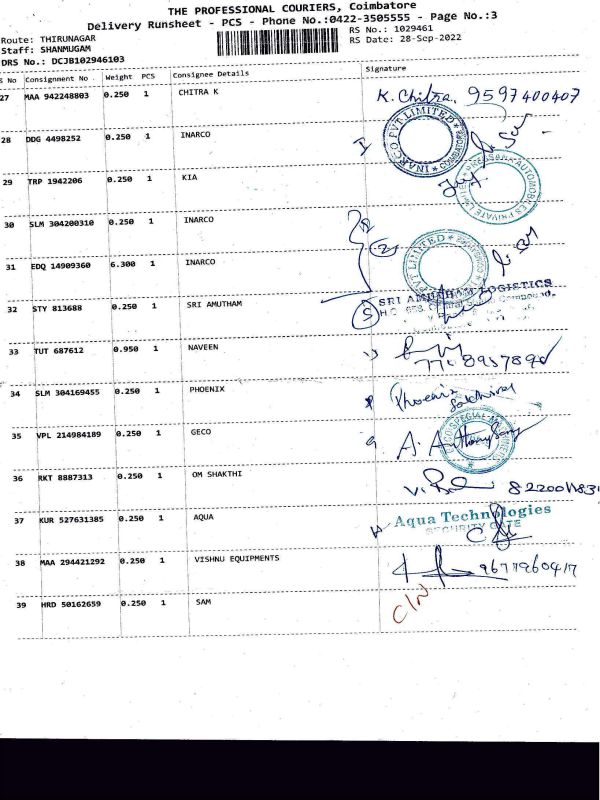 THE PROFESSIONAL COURIERS, Coimbatore
Delivery Runsheet - PCS - Phone No.:0422-3505555 - Page No.:3
Route: THIRUNAGAR
Staff: SHANMUGAM
DRS No.: DCJB102946103
RS No.: 1029461
RS Date: 28-Sep-2022
S No Consignment No Weight PCS Consignee Details Signature
27 MAA 942248803 0.250 1 CHITRA K K. Chitra. 9597400407
28 DDG 4498252 0.250 1 INARCO
INARCO PVT LIMITED
29 TRP 1942206 0.250 1 KIA
AUTOMOBILES PRIVATE LIMITED
30 SLM 304200310 0.250 1 INARCO
31 EDQ 14909360 6.300 1 INARCO
2
PVT LIMITED
32 STY 813688 0.250 1 SRI AMUTHAM
5 SRI AMUTHAM LOGISTICS
33 TUT 687612 0.950 1 NAVEEN
34 SLM 304169455 0.250 1 PHOENIX Phoenix
35 VPL 214984189 0.250 1 GECO
36 RKT 8887313 0.250 1 OM SHAKTHI
37 KUR 527631385 0.250 1 AQUA Aqua Technologies
SECURITY GATE
38 MAA 294421292 0.250 1 VISHNU EQUIPMENTS 9677960417
39 HRD 50162659 0.250 1 SAM C/N